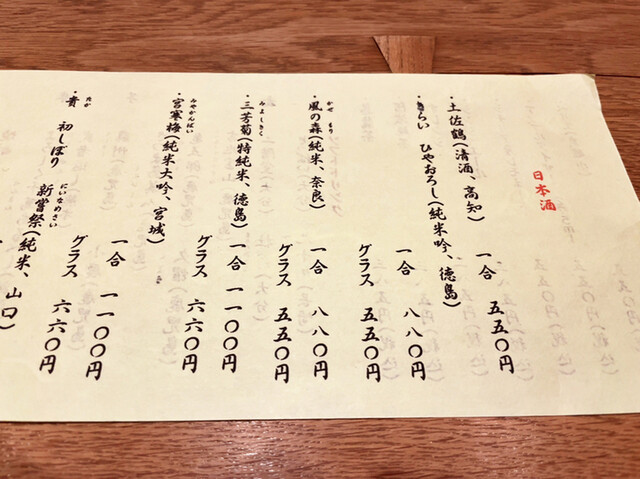 日本酒
・土佐鶴(清酒、高知)
一合 五五〇円
・きらい ひやおろし(純米吟、徳島)
一合 八八〇円
グラス 五五〇円
かぜ もり
・風の森(純米、奈良)
一合 八八〇円
グラス 五五〇円
みよしきく
・三芳菊(特純米、徳島)
一合 一一〇〇円
グラス 六六〇円
みやかんばい
・宮寒梅(純米大吟、宮城)
一合 一一〇〇円
グラス 六六〇円
たか にいなめさい
・貴 初しぼり 新嘗祭(純米、山口)